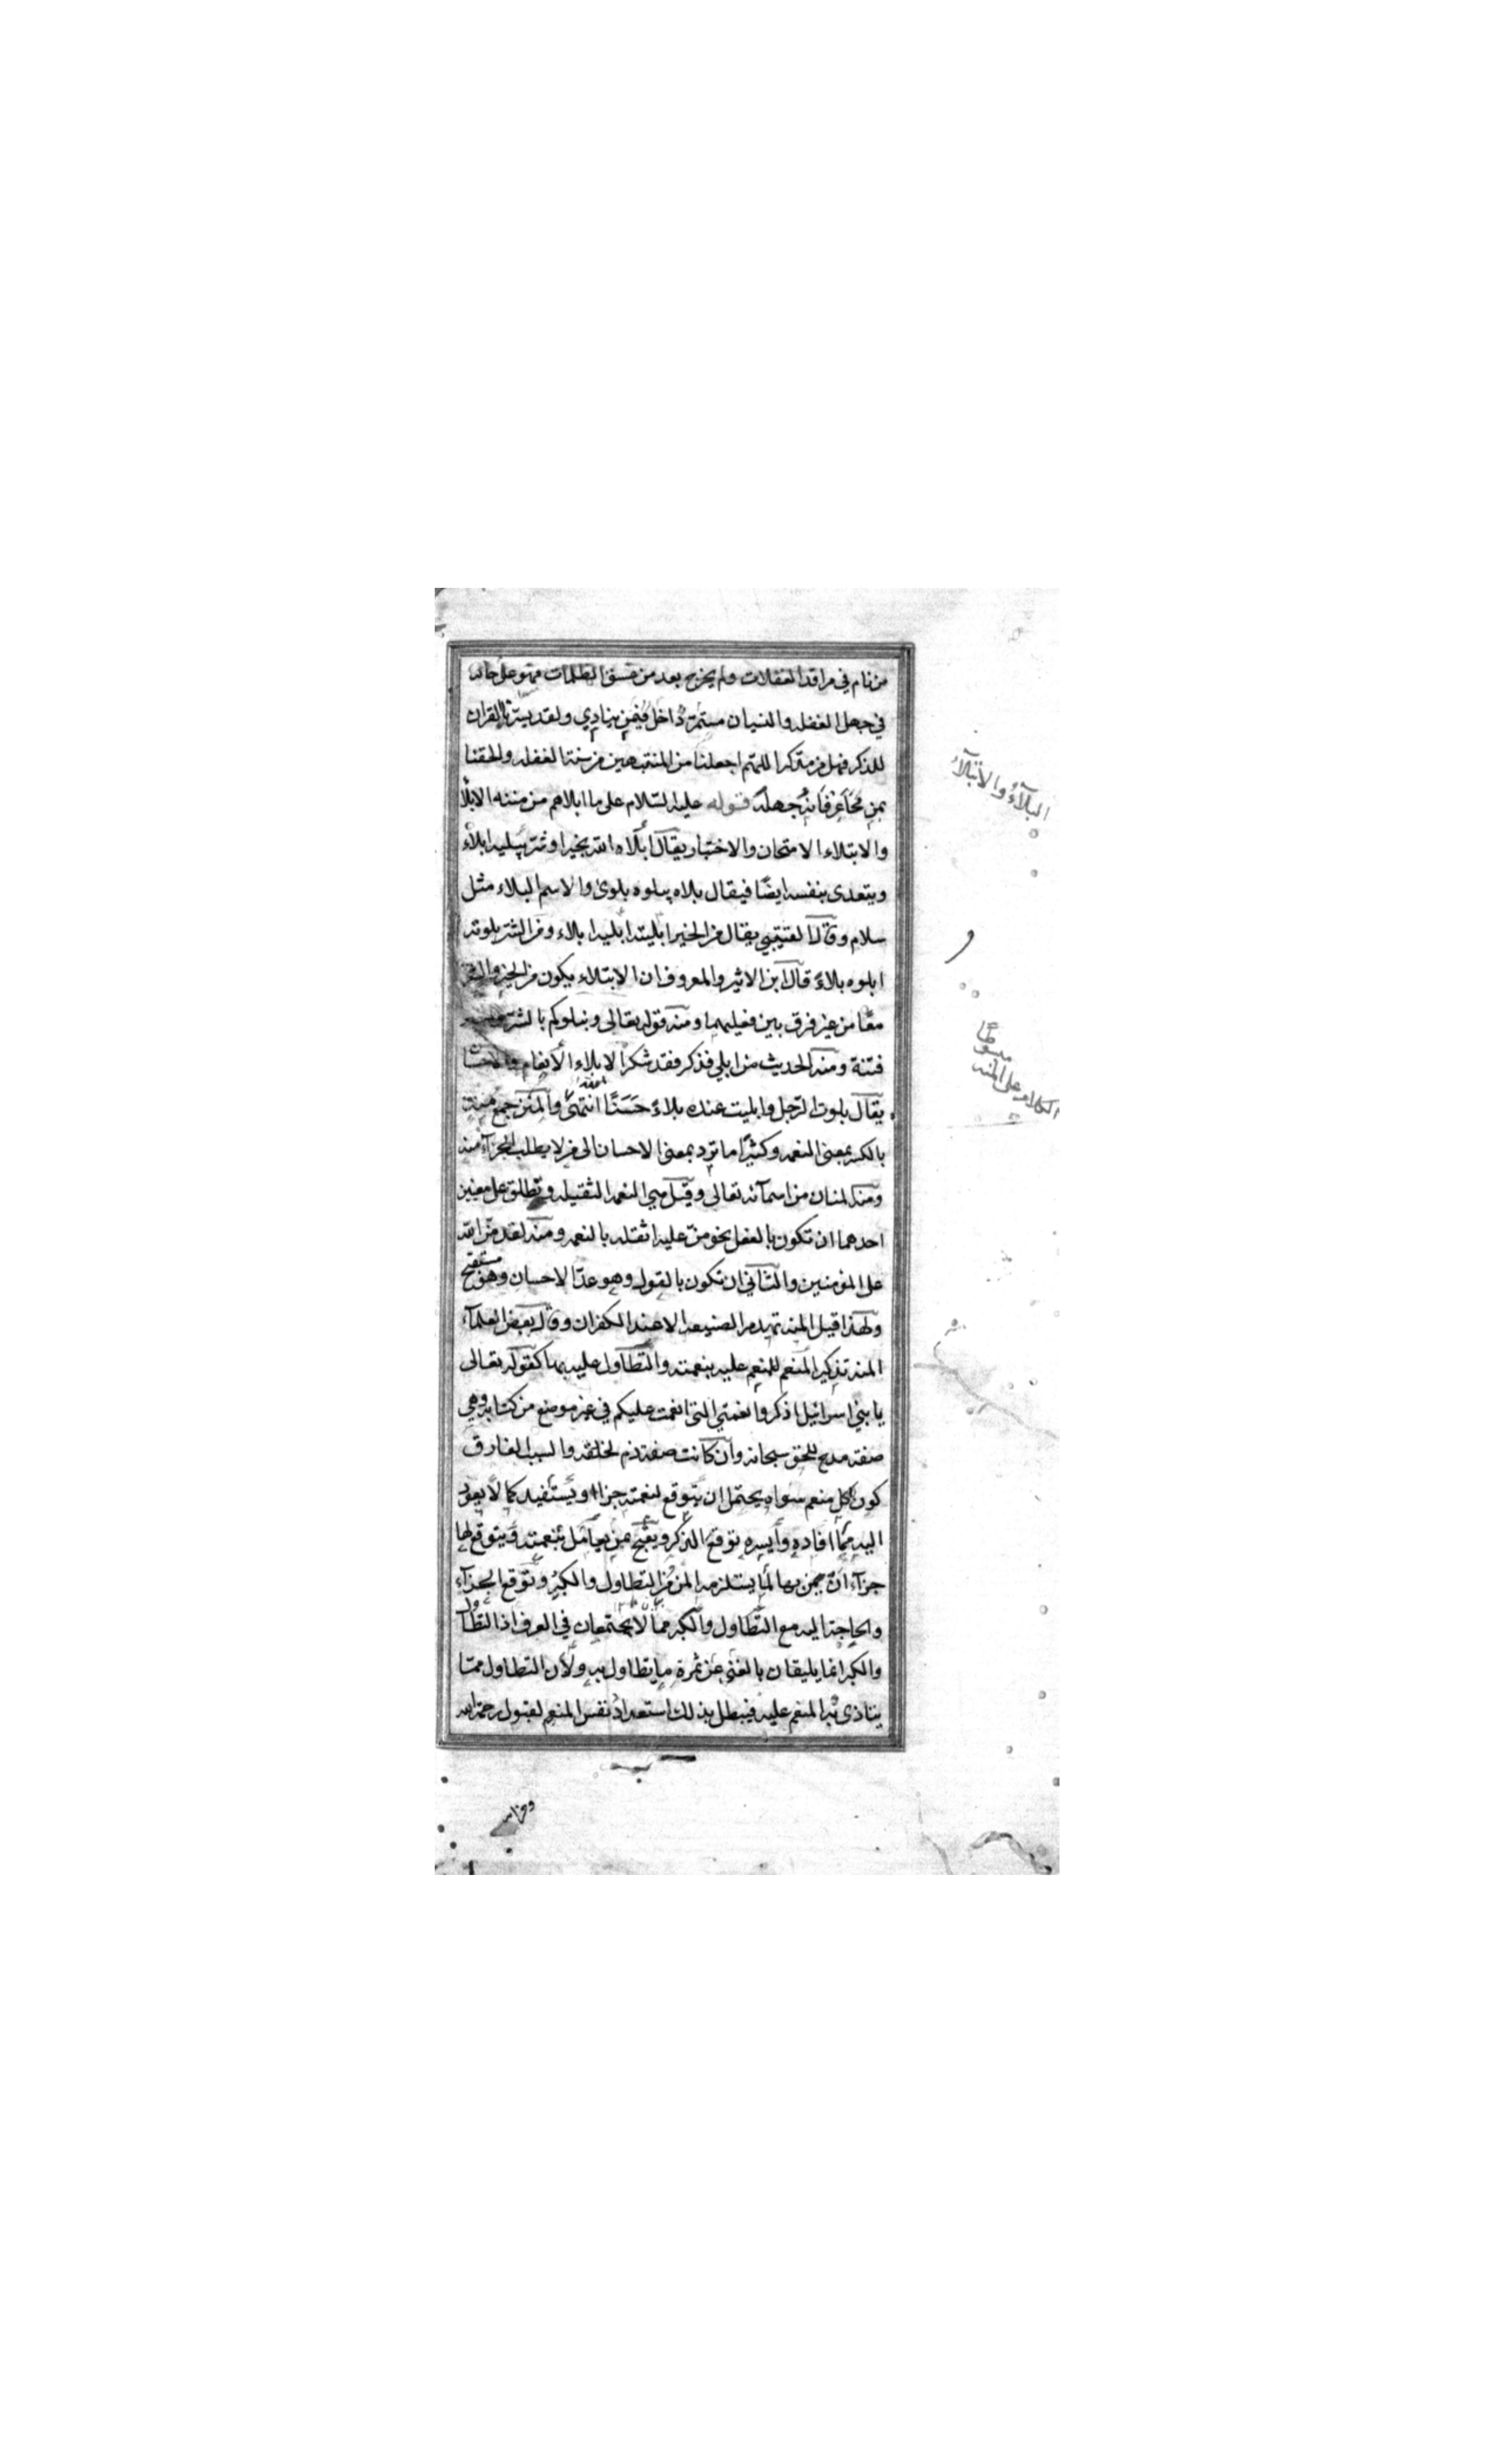 من نام في مراقد الغفلات ولم يخرج بعد من غسق الظلمات فهو على حاله
في جهل الغفله والنسيان مستمر داخل فيمن ينادي ولقد يسرنا القران
للذكر فهل من مدكر اللهم اجعلنا من المنتبهين من سنة الغفله والحقنا
بمن محا عرفانه جهله قوله عليه السلام على ما ابلاهم من مننه الابلاء
والابتلاء الامتحان والاختبار يقال ابلاه الله بخير او شر يبليه ابلاء
ويتعدى بنفسه ايضًا فيقال بلاه يبلوه بلوى والاسم البلاء مثل
سلام وقال القتيبي يقال من الخير ابليته ابليه ابلاء ومن الشر بلوته
ابلوه بلاءً قال ابن الاثير والمعروف ان الابتلاء يكون من الخير والشر
معًا من غير فرق بين فعليهما ومنه قوله تعالى ونبلوكم بالشر والخير
فتنة ومنه الحديث من ابلي فذكر فقد شكر الابلاء الأنعام والاحسان
يقال بلوت الرجل وابليت عنده بلاءً حَسَنًا انتهى والمنن جمع منه
بالكسر بمعنى النعمه وكثيرًا ما ترد بمعنى الاحسان الى من لا يطلب الجزآء منه
ومنه المنان من اسمآئه تعالى وقيل هي النعمه الثقيله وتطلق على معنيين
احدهما ان تكون بالفعل نحو منّ عليه اثقله بالنعمه ومنه لقد منّ الله
على المؤمنين والثاني ان تكون بالقول وهو عدّ الاحسان وهو مستقبح
ولهذا قيل المنه تهدم الصنيعه الا عند الكفران وقال بعض العلمآء
المنه تذكير المنعم للمنعم عليه بنعمته والتطاول عليه بها كقوله تعالى
يا بني اسرائيل اذكروا نعمتي التي انعمت عليكم في غير موضع من كتابه وهي
صفة مدح للحق سبحانه وان كانت صفة ذم لخلقه والسبب الفارق
كون كل منعم سواه يحتمل ان يتوقع لنعمته جزاء او يستفيد كمالا يعود
اليه مما افاده وأيسره توقع الذكر ويقبح ممن يعامل بنعمته ويتوقع لها
جزآء ان يمن بها لما يستلزمه المن من التطاول والكبر وتوقع الجزآء
والحاجة اليه مع التطاول والكبر مما لا يجتمعان في العرف اذ التطاول
والكبر انما يليقان بالغني عن ثمرة ما يتطاول به ولأن التطاول مما
يتاذى به المنعم عليه فيبطل بذلك استعداد نفس المنعم لقبول رحمة الله
البلآء والابتلآء
الكلام على المنه
مبسوطا